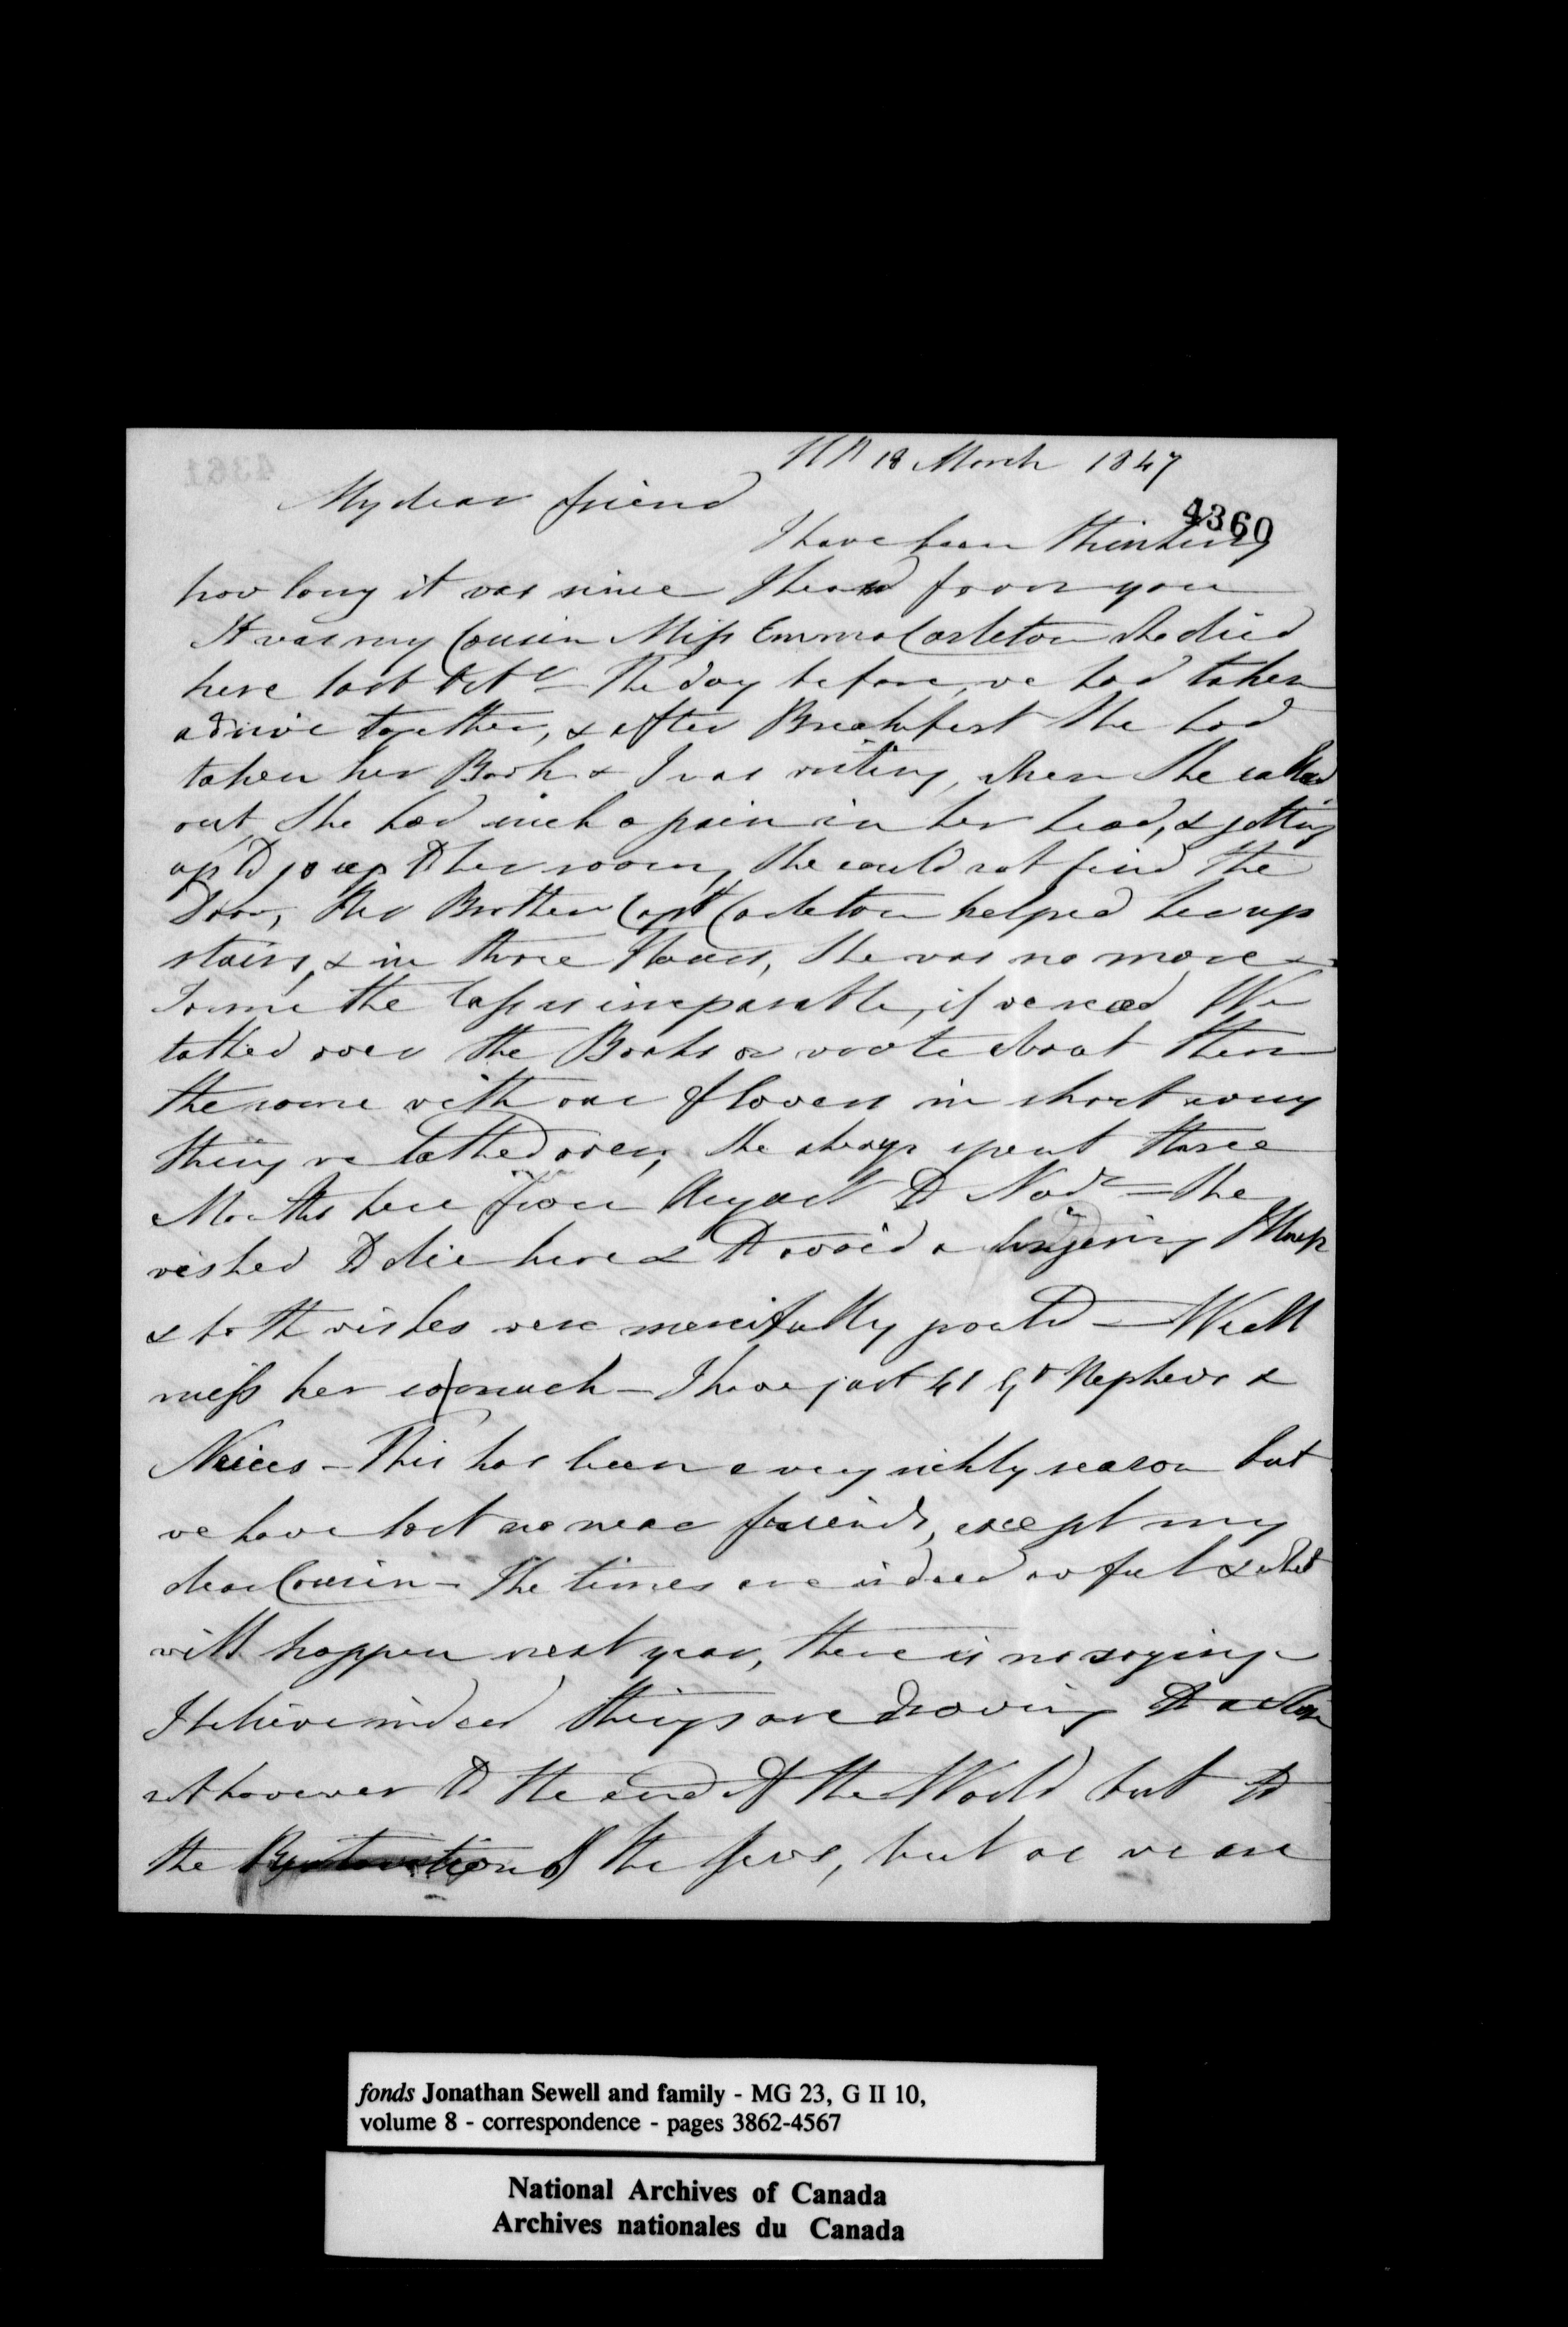 18 March 1847
4361
My dear friend
4360
I have been thinking
how long it was since I heard from you
It was my Cousin Miss Emma Carleton who died
here last Octr - The day before, we had taken
a drive together, & after Breakfast she had
taken her Book & I was writing, when she called
out she had such a pain in her head, & getting
up to go up to her room, she could not find the
Door, Her Brother Capt Carleton helped her up
stairs, & in three Hours, she was no more -
To me the loss is irreparable, if we read We
talked over the Books or wrote about them
the same with our flowers in short every
thing we talked over, she always spent three
Months here from August to Novr - She
wished to die here & to avoid a lingering Illness
& both wishes were mercifully grantd - We all
miss her so much - I have just 41 Gt Nephews &
Neices - This has been a very sickly season but
we have lost no near friends, except my
dear Cousin - The times are indeed awful & what
will happen next year, there is no saying -
I believe indeed things are drawing to a close
not however to the end of the World but to
the Restoration of the Jews, but as we are
fonds Jonathan Sewell and family - MG 23, G II 10,
volume 8 - correspondence - pages 3862-4567
National Archives of Canada
Archives nationales du Canada